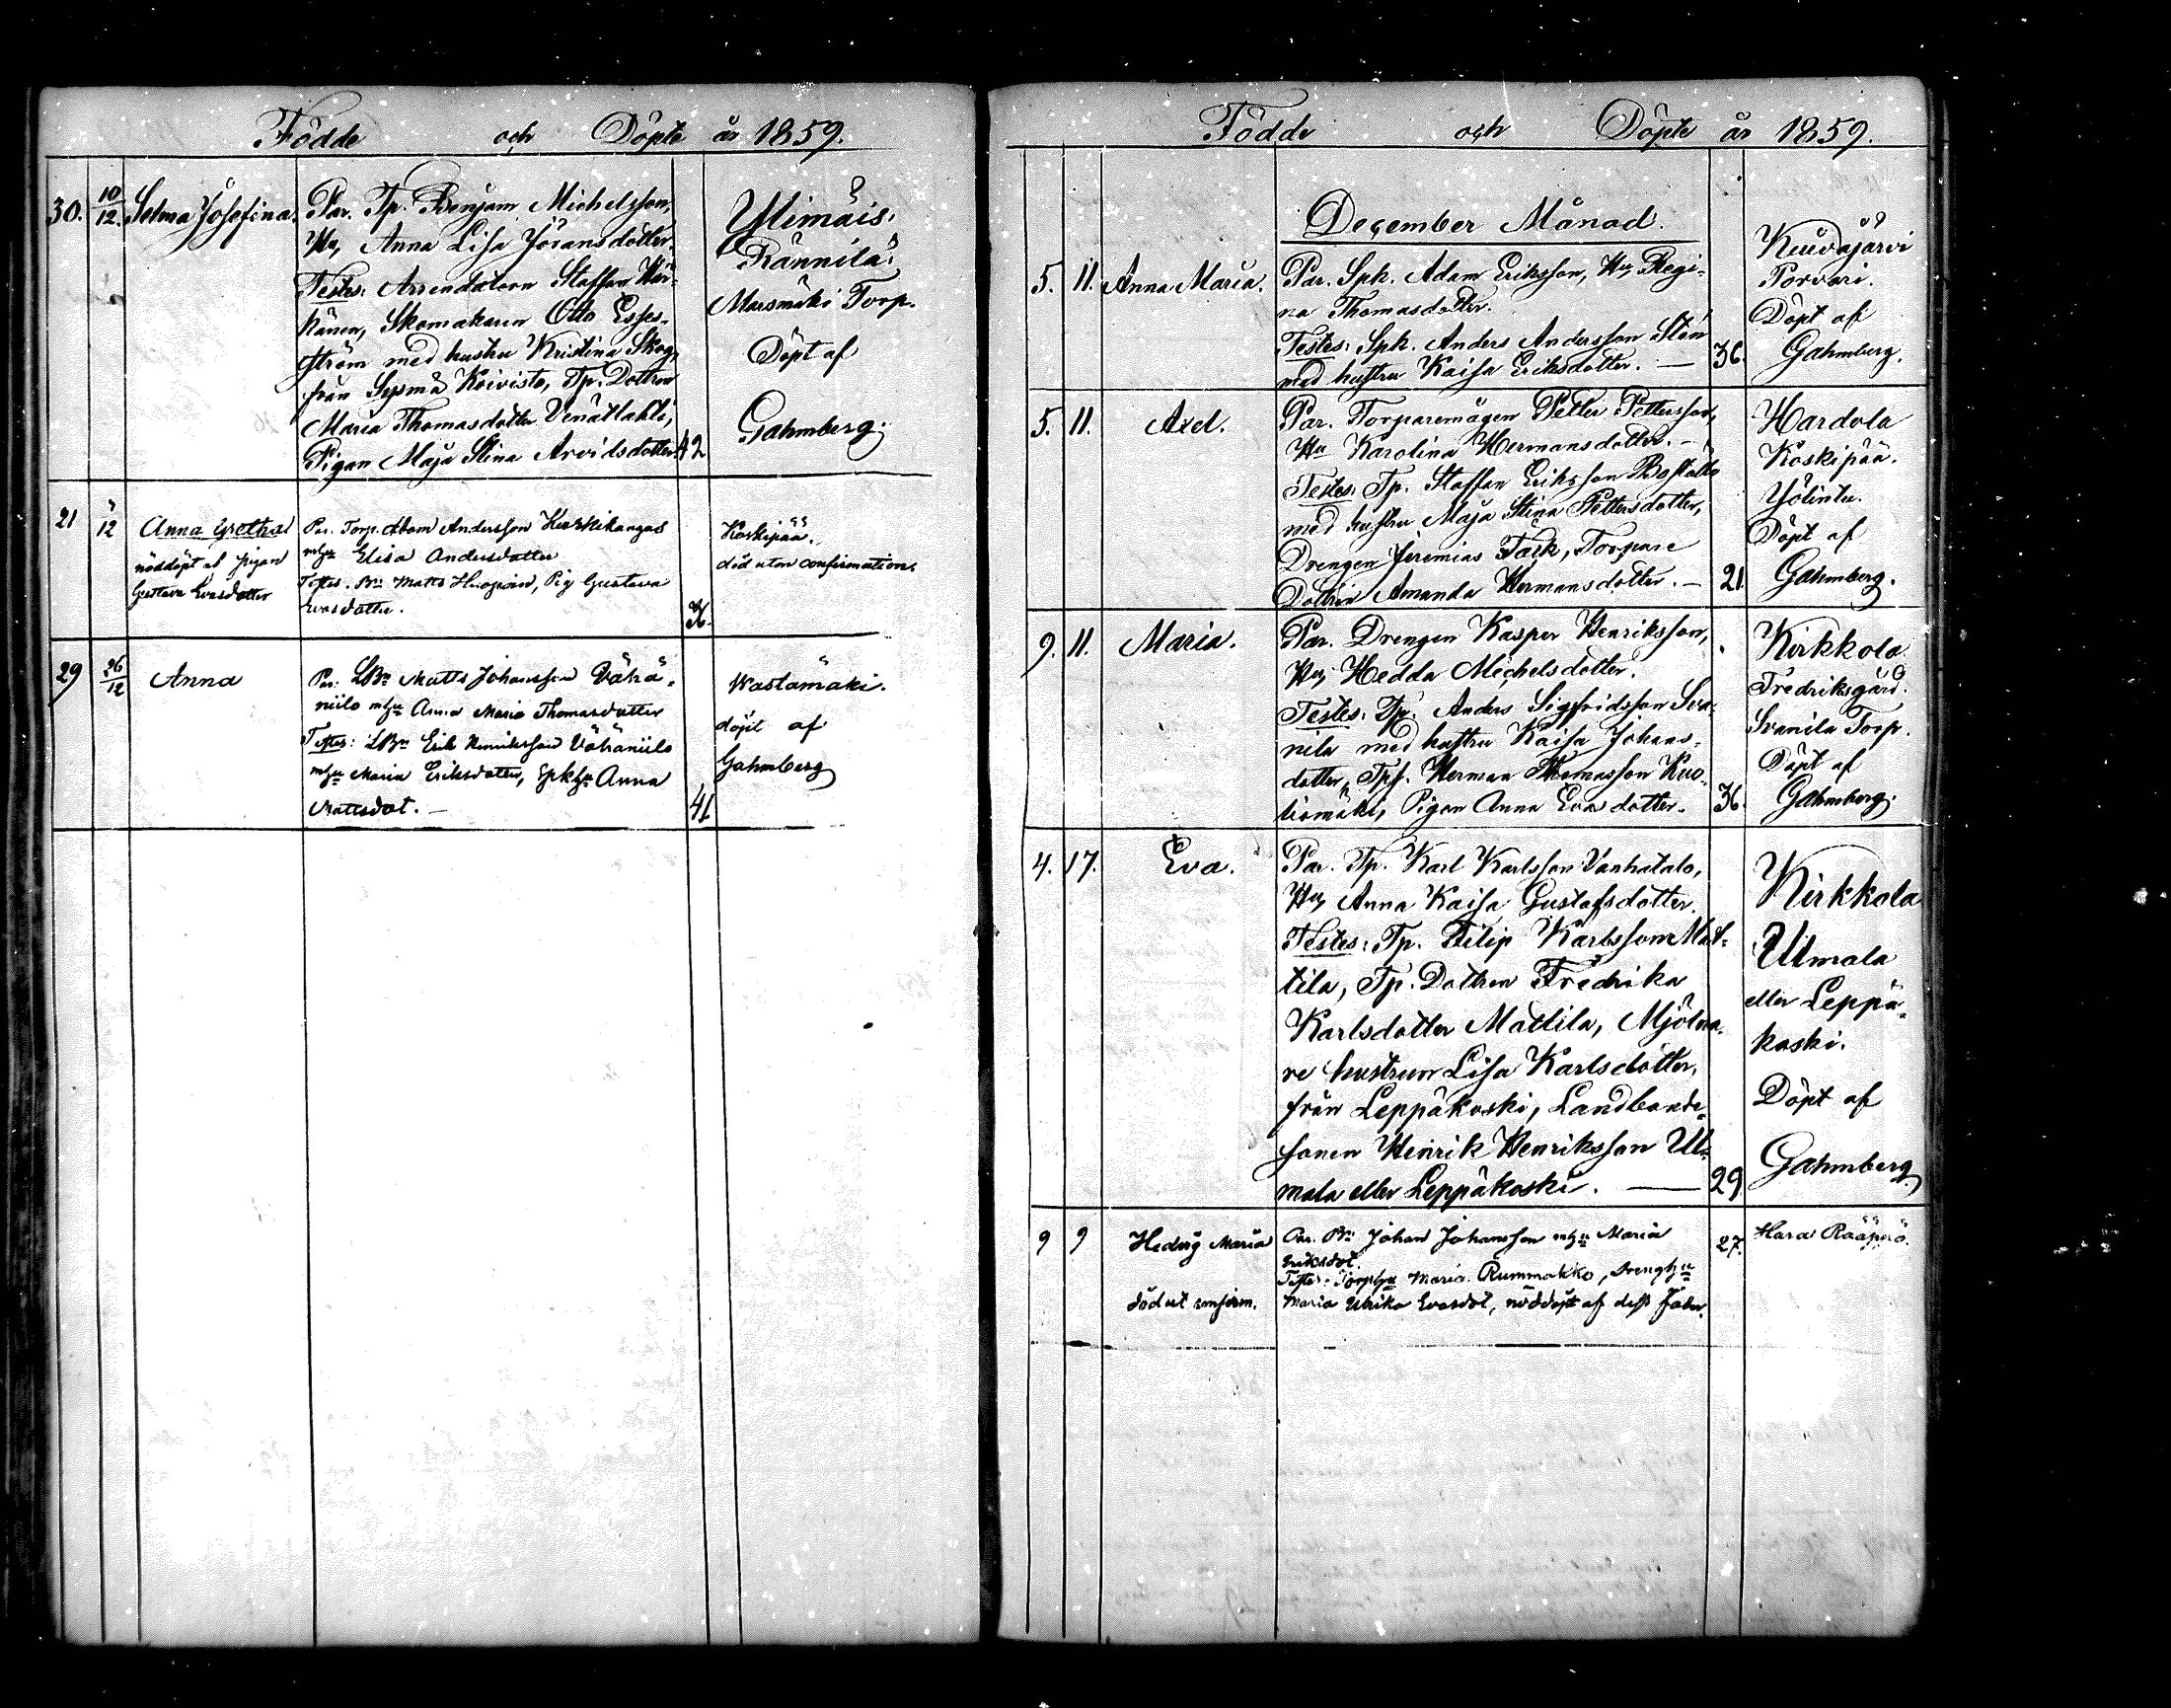 Födde och Döpte år 1859.
30. 10/12. Selma Josefina. Par. Tp. Benjam Michelsson,
Hu, Anna Lisa Jöransdotter.
Testes: Arrendatorn Staffan Här-
känen, Skomakaren Otto Esses-
ström med hustru Kristina Skog,
från Sysmä Koivisto, Tp. Dottren
Maria Thomasdotter Venätlahti,
Pigan Maja Stina Arvidsdotter. 42
Ylimäis.
Männilä.
Marsmäki Torp.
Döpt af
Gahmberg.
21 12 Anna Gretha
nöddöpt af pigan
Gustava Evasdotter
Par. Torp. Adam Andersson Kuskikangas
mhu Elisa Andersdotter
Testes: Bn Matts Huopoin, Pig Gustava
Evasdotter. 36.
Koskipää.
död utan confirmation.
29 26/12 Anna
Par. LBn Matts Johansson Vähä-
niilo mhu Anna Maria Thomasdotter
Testes: LBn Erik Henriksson Vähäniilo
mhu Maria Eriksdotter, Spkhu Anna
Mattsdot. — 41
Wastamäki.
döpt af
Gahmberg
Födde och Döpte år 1859.
December Månad.
5. 11. Anna Maria. Par. Spk. Adam Eriksson, Hu Regi-
na Thomasdotter.
Testes: Spk. Anders Andersson Sten
med hustru Kaisa Eriksdotter. — 36.
Keuväjärvi
Porvari.
Döpt af
Gahmberg.
5. 11. Axel. Par. Torparemågen Petter Pettersson,
Hu Karolina Hermansdotter. —
Testes: Tp. Staffan Eriksson
med hustru Maja Stina Pettersdotter,
Drengen Jeremias Färk, Torpare
Dottren Amanda Hermansdotter. — 21
Hardola
Koskipää.
Yölintu.
Döpt af
Gahmberg.
9. 11. Maria. Par. Drengen Kasper Henriksson,
Hu, Hedda Michelsdotter.
Testes: Tp. Anders Sigfridsson Sva-
nila med hustru Kaisa Johans-
dotter, Tps. Herman Thomasson Kuo-
tiomäki, Pigan Anna Evadotter. 36.
Kirkkola
Fredriksgård.
Svanila Torp.
Döpt af
Gahmberg.
4. 17. Eva. Par. Tp. Karl Karlsson Vanhatalo,
Hu, Anna Kaisa Gustafsdotter.
Testes: Tp. Filip Karlsson Mat-
tila, Tp. Dottren Fredrika
Karlsdotter Mattila, Mjölna-
re hustrun Lisa Karlsdotter,
från Leppäkoski, Landbonde-
sonen Henrik Henriksson Ul-
mala eller Leppäkoski. — 29
Kirkkola
Ulmala
eller Leppä-
koski.
Döpt af
Gahmberg
9 9 Hedvig Maria
död ut confirm.
Par. Bn Johan Johansson mhu Maria
Eriksdot.
Testes: Torphu Maria Rummakko, Drenghu
Maria Ulrika Evasdot, nöddöpt af dess fader. 27.
Hara Rääpiö.